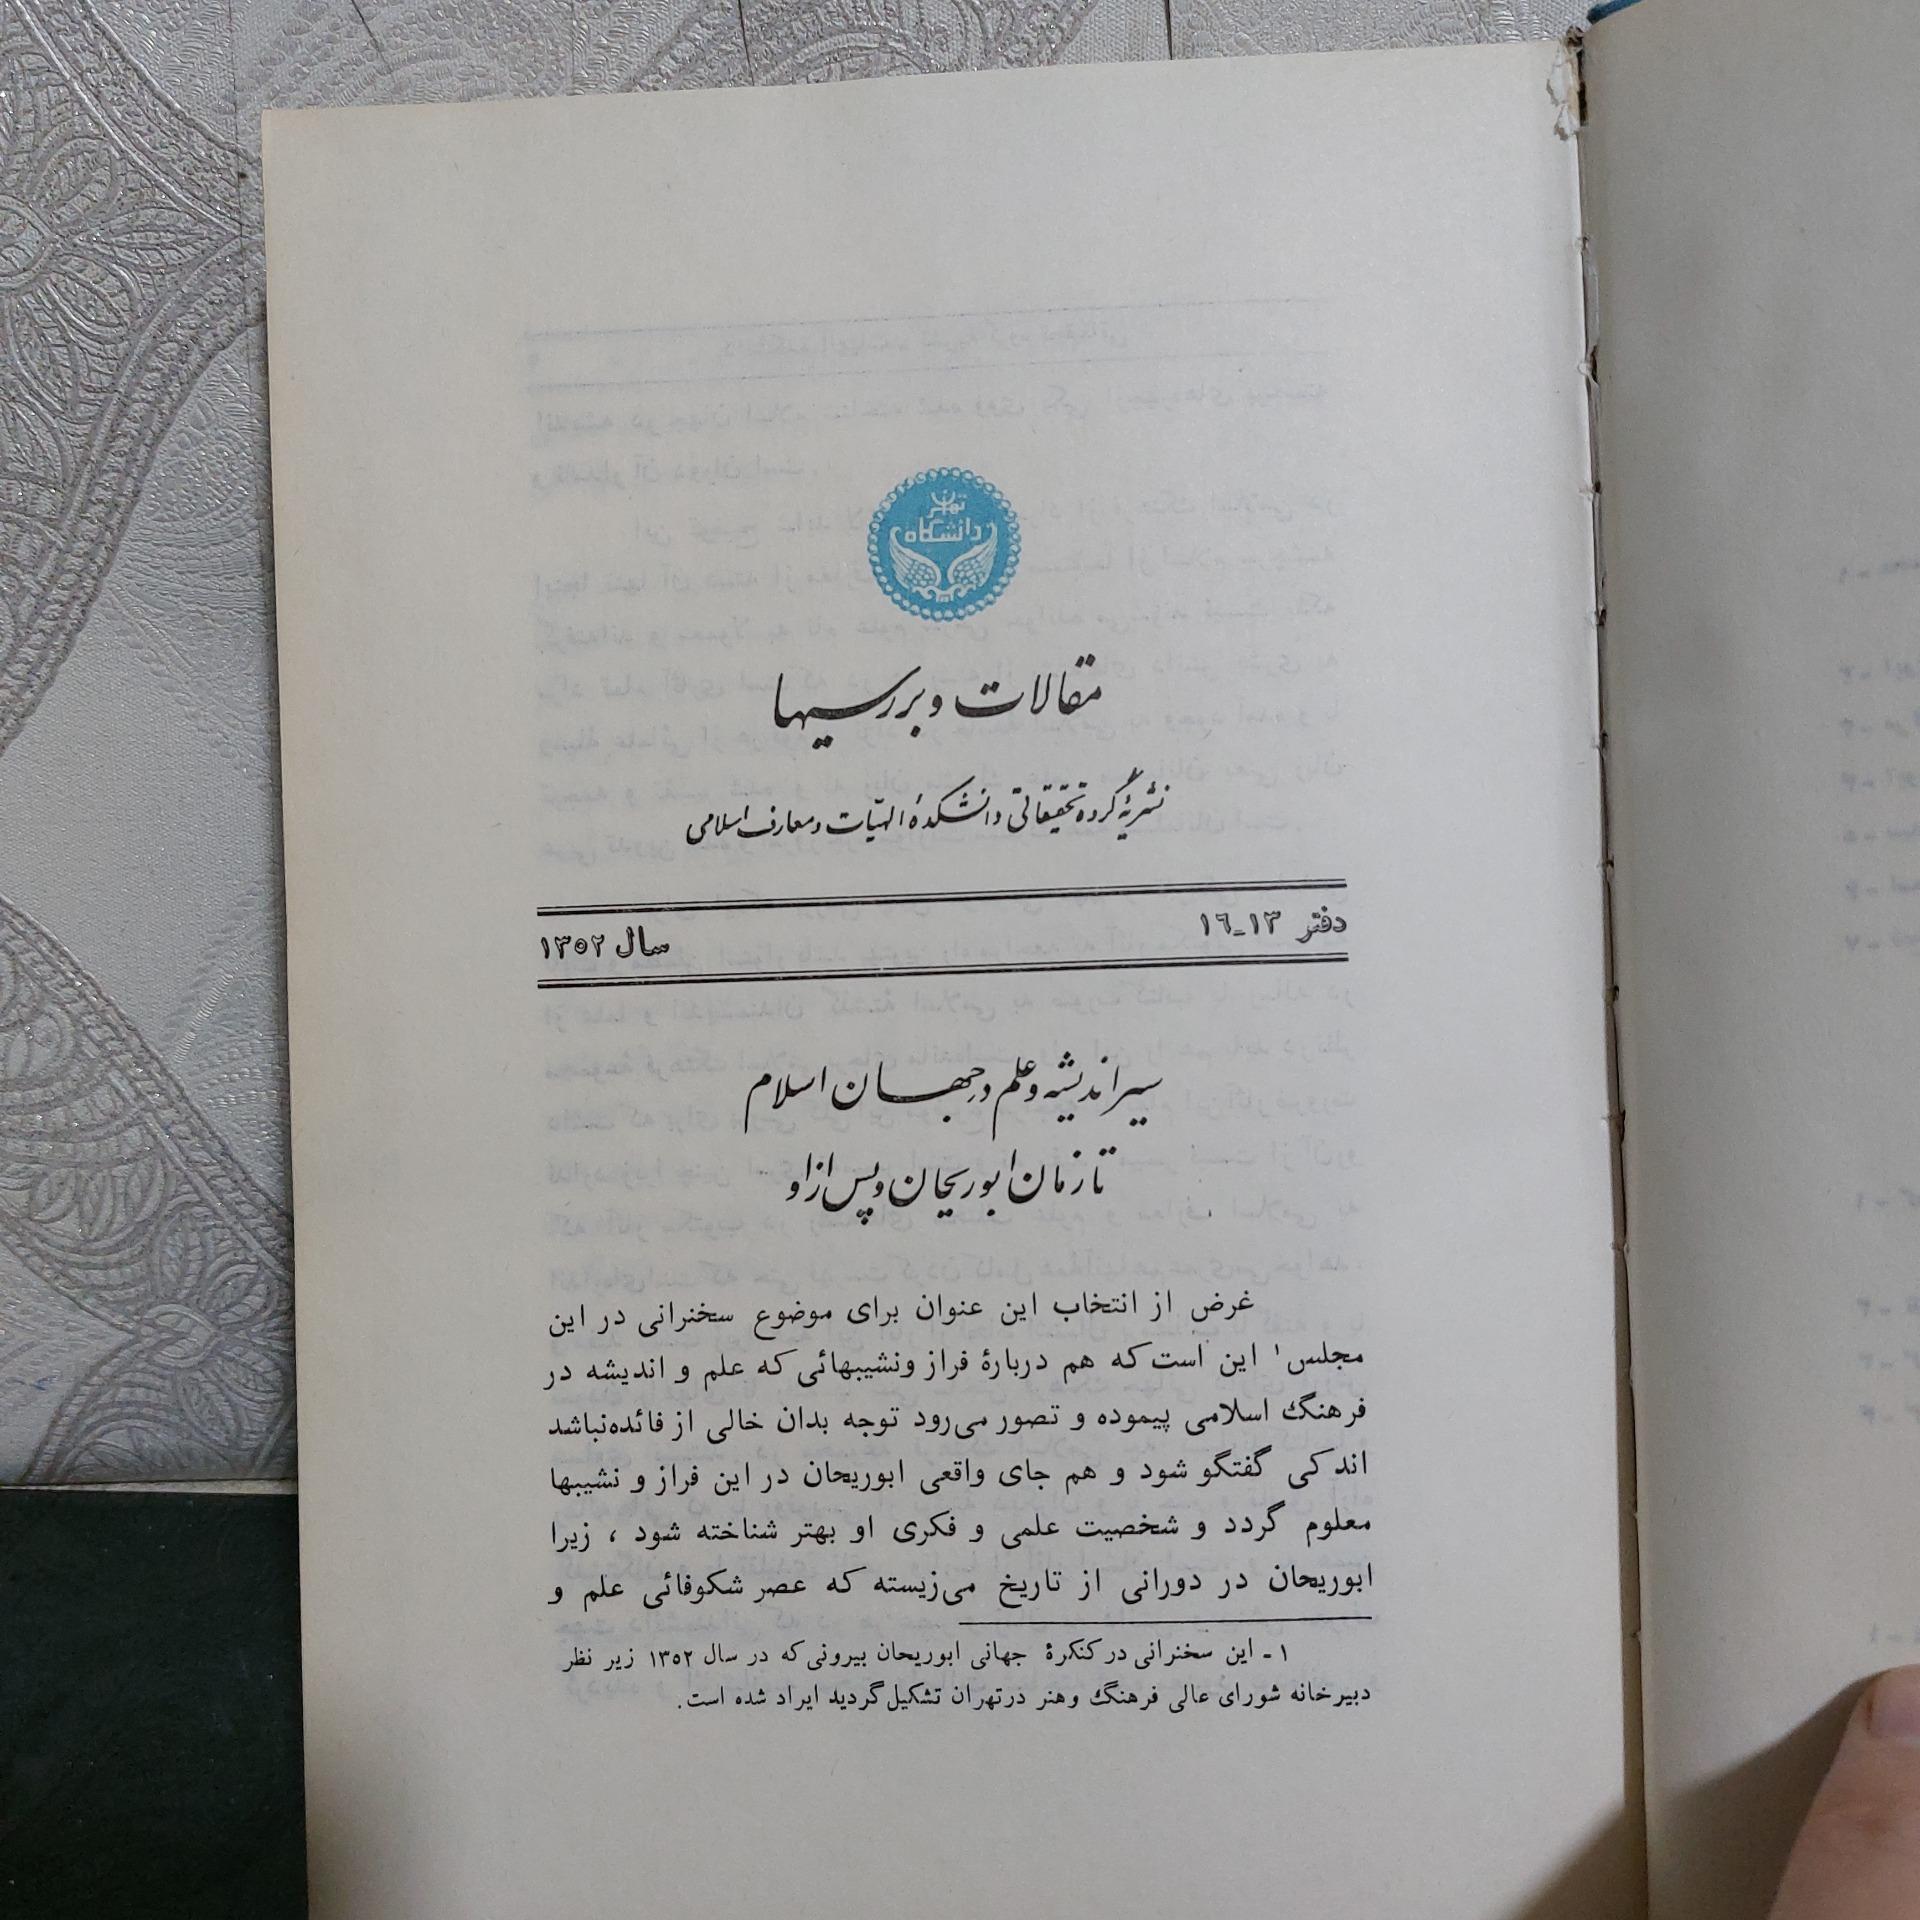 دانشگاه تهران
مقالات و بررسیها
نشریهٔ گروه تحقیقاتی دانشکدهٔ الهیّات و معارف اسلامی
دفتر ۱۳-۱۶
سال ۱۳۵۲
سیر اندیشه و علم در جهان اسلام
تا زمان ابوریحان و پس از او
غرض از انتخاب این عنوان برای موضوع سخنرانی در این
مجلس۱ این است که هم دربارهٔ فراز ونشیبهائی که علم و اندیشه در
فرهنگ اسلامی پیموده و تصور می‌رود توجه بدان خالی از فائده‌نباشد
اندکی گفتگو شود و هم جای واقعی ابوریحان در این فراز و نشیبها
معلوم گردد و شخصیت علمی و فکری او بهتر شناخته شود ، زیرا
ابوریحان در دورانی از تاریخ می‌زیسته که عصر شکوفائی علم و
۱ - این سخنرانی در کنکرهٔ جهانی ابوریحان بیرونی که در سال ۱۳۵۲ زیر نظر
دبیرخانه شورای عالی فرهنگ وهنر درتهران تشکیل گردید ایراد شده است.